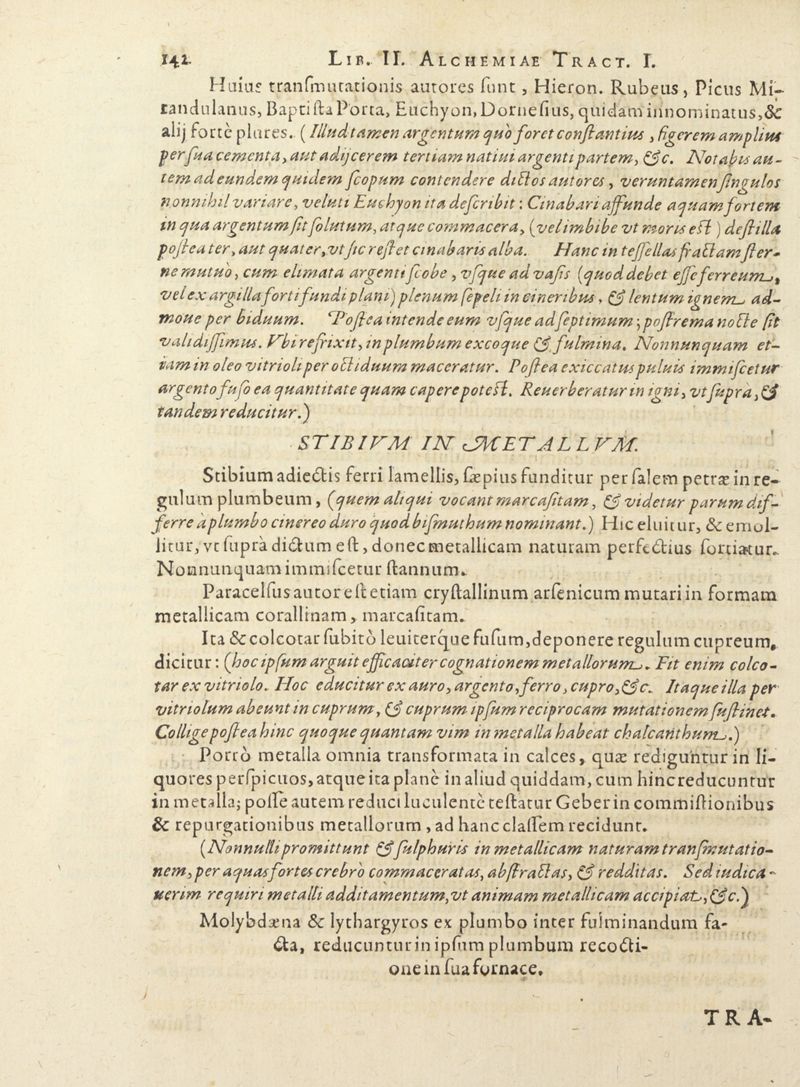 142. LIB. II. ALCHEMIAE TRACT. I.
Huius tranſmutationis autores ſunt, Hieron. Rubeus, Picus Mi-
randulanus, Baptiſta Porta, Euchyon, Dorneſius, quidam innominatus, &
alij fortè plures. (Illud tamen argentum quò foret conſtantius, figerem amplius
per ſua cementa, aut adijcerem tertiam natiui argenti partem, &c. Notabis au-
tem ad eundem quidem ſcopum contendere dictos autores, veruntamen ſingulos
nonnihil variare, veluti Euchyon ita deſcribit: Cinabari affunde aquam fortem
in qua argentum ſit ſolutum, atque commacera, (vel imbibe vt moris eſt) deſtilla
poſtea ter, aut quater, vt ſic reſtet cinabaris alba. Hanc in teſſellas fractam ſter-
ne mutuò, cum elimata argenti ſcobe, vſque ad vaſis (quod debet eſſe ferreum,
vel ex argilla forti fundi plani) plenum ſepeli in cineribus, & lentum ignem ad-
moue per biduum. Poſtea intende eum vſque ad ſeptimum; poſtrema nocte ſit
validiſſimus. Vbi refrixit, in plumbum excoque & fulmina. Nonnunquam et-
iam in oleo vitrioli per octiduum maceratur. Poſtea exiccatus puluis immiſcetur
argento fuſo ea quantitate quam capere poteſt. Reuerberatur in igni, vt ſupra, &
tandem reducitur.)
STIBIVM IN METALLVM.
Stibium adiectis ferri lamellis, ſæpius funditur per ſalem petræ in re-
gulum plumbeum, (quem aliqui vocant marcaſitam, & videtur parum dif-
ferre à plumbo cinereo duro quod biſmuthum nominant.) Hic eluitur, & emol-
litur, vt ſuprà dictum eſt, donec metallicam naturam perfectius ſortiatur.
Nonnunquam immiſcetur ſtannum.
Paracelſus autor eſt etiam cryſtallinum arſenicum mutari in formam
metallicam corallinam, marcaſitam.
Ita & colcotar ſubitò leuiterque fuſum, deponere regulum cupreum,
dicitur: (hoc ipſum arguit efficaciter cognationem metallorum. Fit enim colco-
tar ex vitriolo. Hoc educitur ex auro, argento, ferro, cupro, &c. Itaque illa per
vitriolum abeunt in cuprum, & cuprum ipſum reciprocam mutationem ſuſtinet.
Collige poſtea hinc quoque quantam vim in metalla habeat chalcanthum.)
Porrò metalla omnia transformata in calces, quæ rediguntur in li-
quores perſpicuos, atque ita planè in aliud quiddam, cum hinc reducuntur
in metalla; poſſe autem reduci luculentè teſtatur Geber in commiſtionibus
& repurgationibus metallorum, ad hanc claſſem recidunt.
(Nonnulli promittunt & ſulphuris in metallicam naturam tranſmutatio-
nem, per aquas fortes crebrò commaceratas, abſtractas, & redditas. Sed iudica-
uerim requiri metalli additamentum, vt animam metallicam accipiat, &c.)
Molybdæna & lythargyros ex plumbo inter fulminandum fa-
cta, reducuntur in ipſum plumbum recocti-
one in ſua fornace.
TRA-